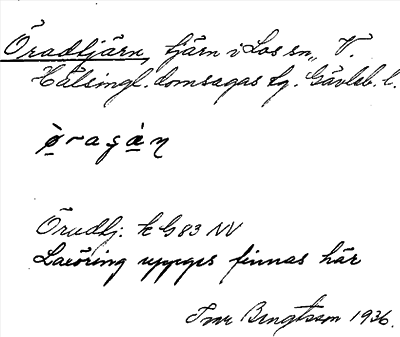 Öradtjärn, tjärn i Los sn, V.
Hälsingl. domsagas tg. Gävleb. l.
Öradtj: k G83 NV
Laxöring uppges finnas här
Bengtsson 1936.